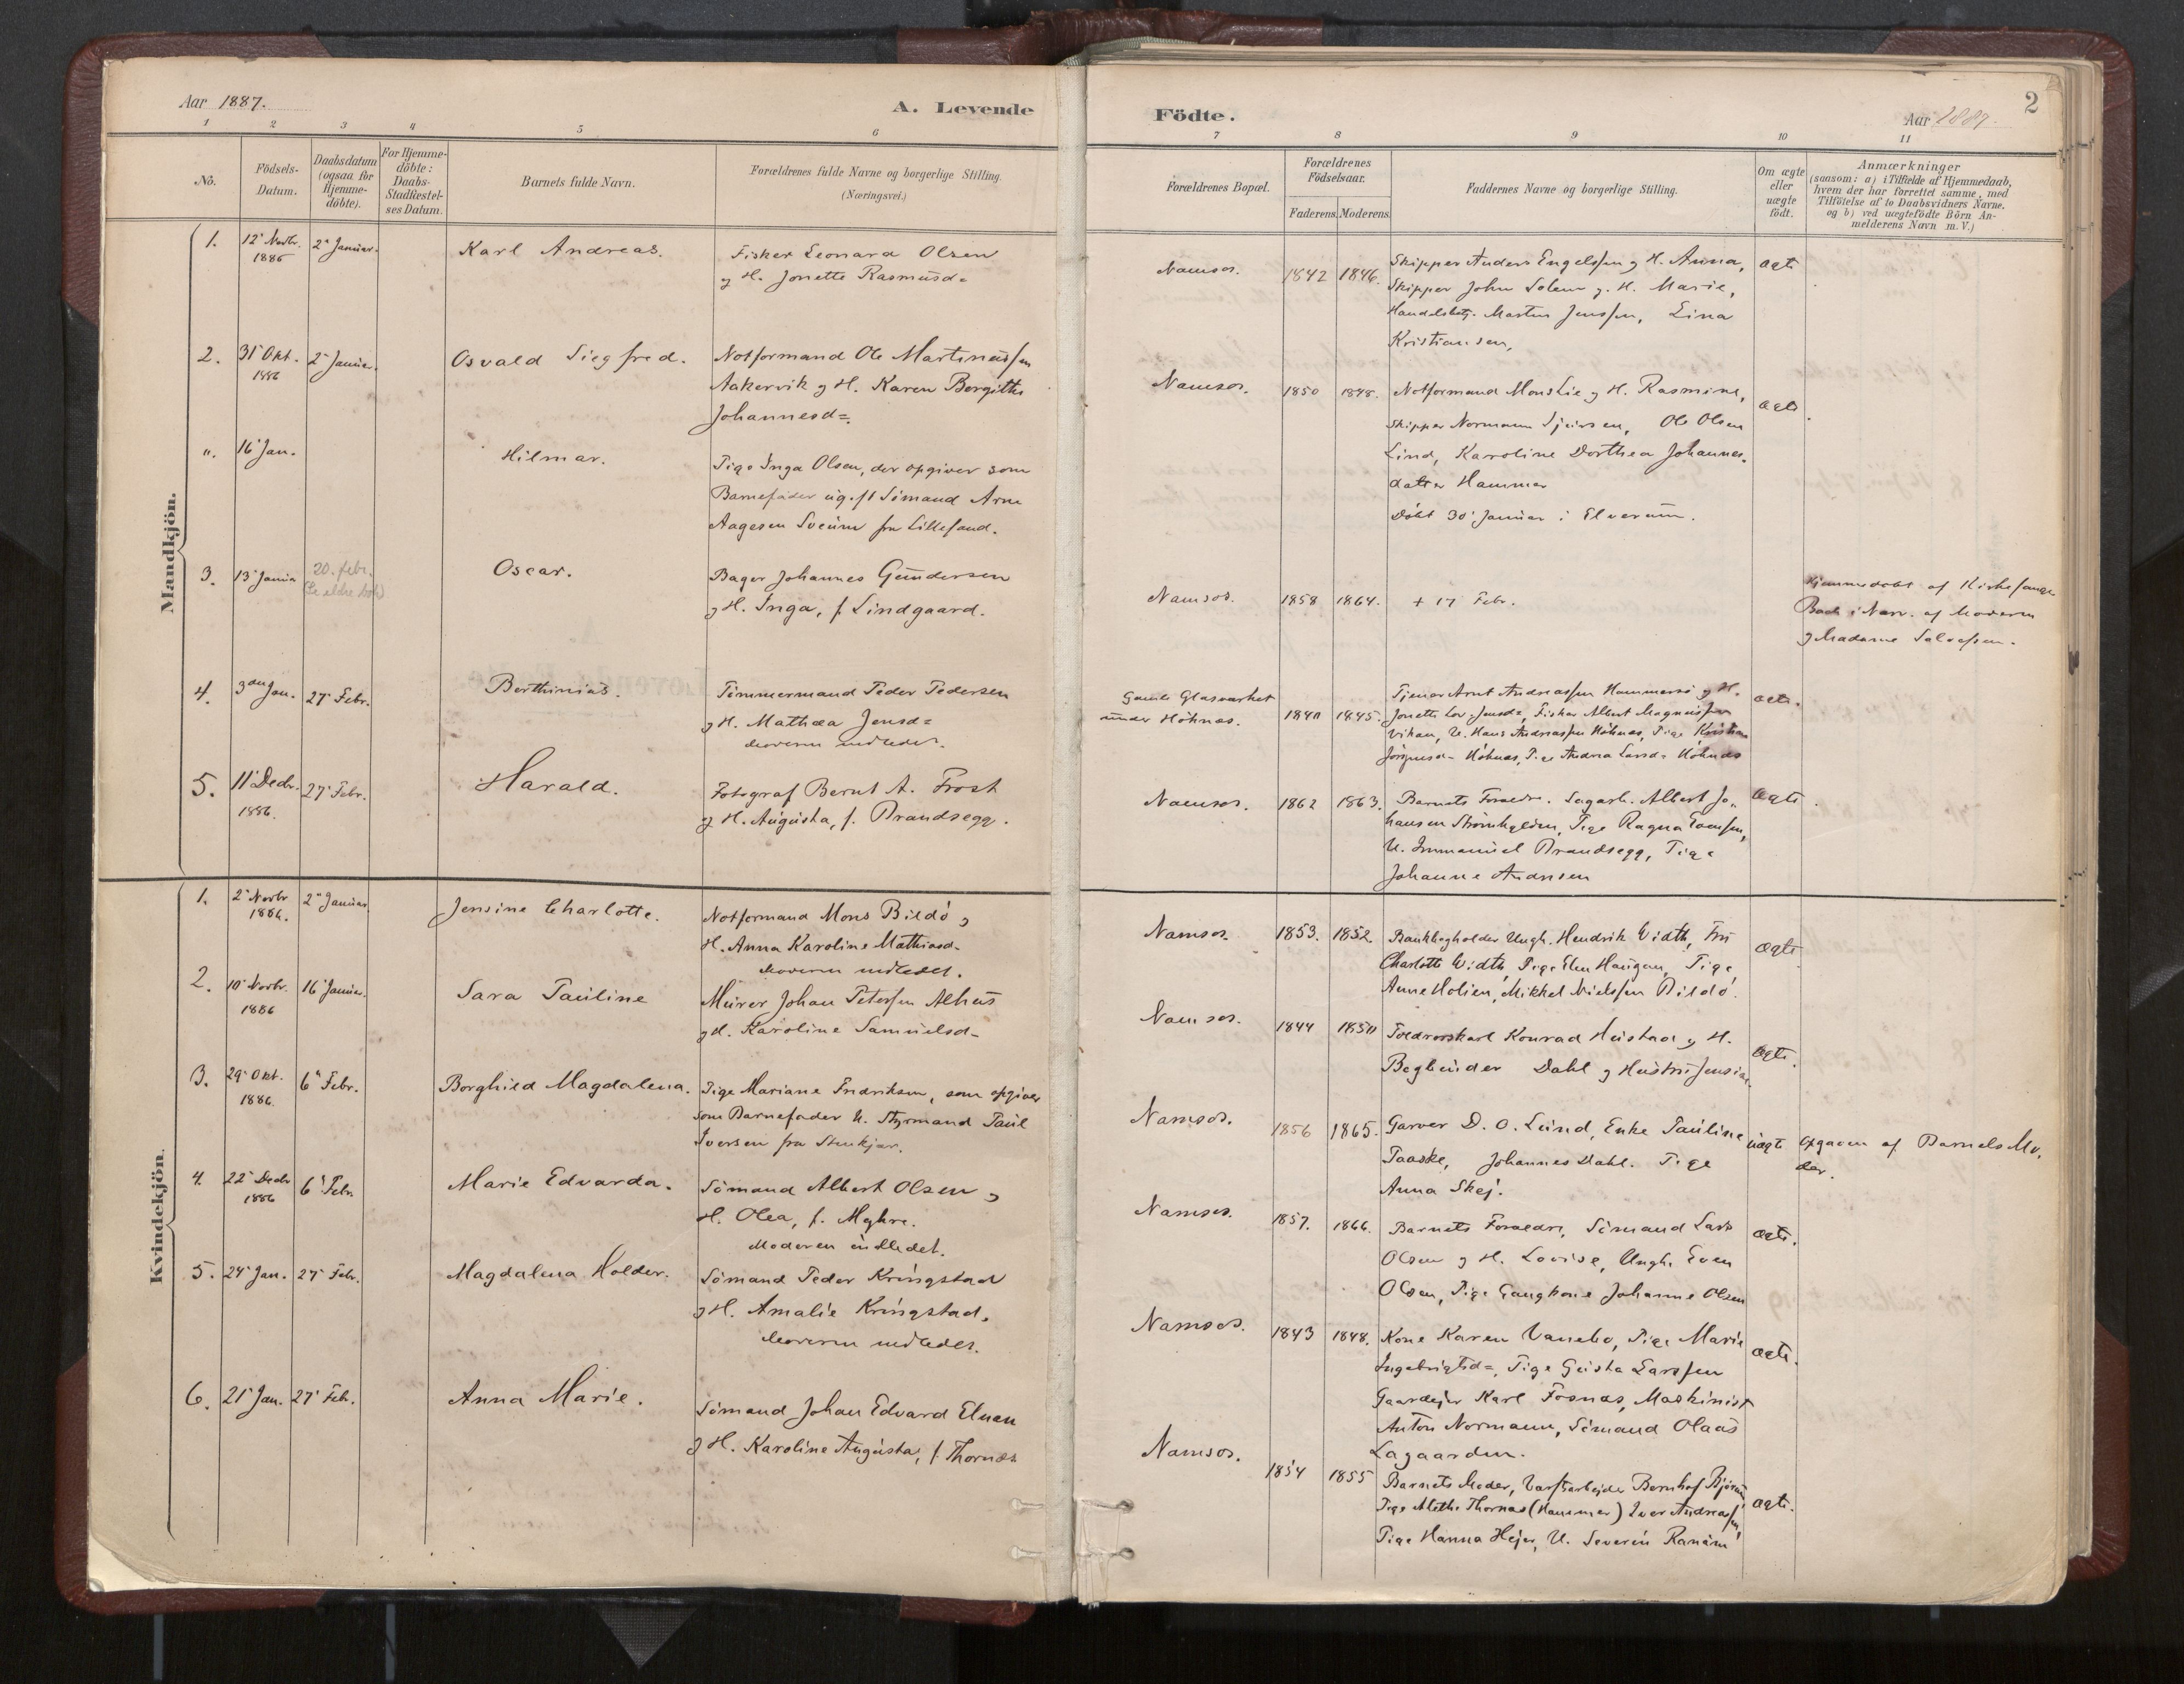 Aar 1887.
A. Levende
Födte.
Aar 1887.
2
1 2 3 4 5 6 7 8 9 10 11
No.
Födsels-
Datum.
Daabsdatum
(ogsaa for
Hjemme-
döbte).
For Hjemme-
döbte:
Daabs-
Stadfæstel-
ses Datum.
Barnets fulde Navn.
Forældrenes fulde Navne og borgerlige Stilling.
(Næringsvei.)
Forældrenes Bopæl.
Forældrenes
Födselsaar.
Faderens. Moderens.
Faddernes Navne og borgerlige Stilling.
Om ægte
eller
uægte
födt.
Anmærkninger
(saasom: a) i Tilfælde af Hjemmedaab,
hvem der har forrettet samme, med
Tilföielse af to Daabsvidners Navne.
og b) ved uægtefödte Börn An-
melderens Navn m. V.)
Mandkjön.
1. 12 Novbr. 1886 2 Januar. Karl Andreas.
Fisker Leonard Olsen
g H. Jonette Rasmusd=
Namsos. 1842 1846.
Skipper Anders Engelssen g H. Anna,
Skipper John Solem g. H. Marie,
Handelsbetj. Martin Jenssen, Lina
Kristiansen,
ægte
2. 31 Okt. 1886 2 Januar. Osvald Siegfred.
Notformand Ole Martinussen
Aakervik g H. Karen Bergitte
Johannesd=.
Namsos. 1850 1848.
Notformand Mons Lie g H. Rasmine,
Skipper Normann , Ole Olsen
Lind, Karoline Dorthea Johannes-
datter Hammer
ægte
". 16 Jan. Hilmar.
Pige Inga Olsen, der opgiver som
Barnefader ug. ft Sömand Arne
Aagesen Sveum fra Lillesand.
Döbt 30 Januar i Elverum.
3. 13 Januar 20. febr. (Se eldre bok) Oscar.
Bager Johannes Gundersen
g H. Inga, f. Lindgaard.
Namsos. 1858 1864. + 17 Febr.
Hjemmedöbt af Kirkesanger
Bach i Nærv. af Moderen
g Madame Salvesen.
4. 3die Jan. 27 Febr. Berthinius.
Tömmermand Peder Pedersen
g H. Mathea Jensd=
Moderen indledet.
Gamle Glasværket
under Höknæs. 1840 1845.
Tjener Arnt Andreassen Hammersö g H.
Jonette Jensd=, Fisker Albert Magnussen
Vikan, U. Hans Andreassen Höknæs, Pige Kristine
Jörgensd= Höknæs, Pige Andrea Larsd= Höknæs
ægte.
5. 11 Decbr. 1886. 27 Febr. Harald.
Fotograf Bernt A. Frost
g H. Augusta, f. Brandsegg.
Namsos. 1862 1863.
Barnets Forældre. Sagarb. Albert Jo-
hansen Strömhylden, Pige Ragna Evensen,
U. Immanuel Brandsegg, Pige
Johanne Andresen
Ægte.
Kvindekjön.
1. 2 Novbr 1886. 2 Januar Jensine Charlotte.
Notformand Mons Bildö g
H. Anna Karoline Mathiasd=
Moderen indledet.
Namsos. 1853. 1852.
Bankbogholder Ungk. Hendrik Width, Fru
Charlotte Width, Pige Elen Haugan, Pige
Anne Molien, Mikkel Nielssen Bildö.
ægte
2. 10 Novbr. 1886 16 Januar. Sara Pauline
Murer Johan Petersen Alhus
g H. Karoline Samuelsd=
Namsos. 1844 1850
Toldroerskarl Konrad Hustad g H.
Bogbinder Dahl g Hustru Jensine.
Ægte.
3. 29 Okt. 1886. 6 Febr. Borghild Magdalena.
Pige Mariane Fredriksen, som opgiver
som Barnefader U. Styrmand Paul
Iversen fra Stenkjær.
Namsos. 1856 1865.
Garver D. O. Lund, Enke Pauline
Paaske, Johannes Dahl. Pige
Anna Skej.
uægte
Opgaven af Barnets Mo-
der.
4. 22 Decbr 1886 6 Febr. Marie Edvarda.
Sömand Albert Olsen g
H. Olea, f. Myhre.
Moderen indledet.
Namsos. 1857. 1866.
Barnets Forældre, Sömand Lars
Olsen g H. Lovise, Ungk. Even
Olsen, Pige Gangkone Johanne Olsen
ægte.
5. 24 Jan. 27 Febr. Magdalena Holder.
Sömand Peder Kringstad
g H. Amalie Kringstad.
Moderen indledet.
Namsos. 1843 1848.
Kone Karen Vanebo, Pige Marie
Ingebrigtsd=, Pige Geisha Larssen
Gaardejer Karl Fosnæs, Maskinist
Anton Normann, Sömand Olaus
Lagaarden.
ægte.
6. 21 Jan. 27 Feb. Anna Marie.
Sömand Johan Edvard Elnan
g H. Karoline Augusta, f. Thornæs
Namsos. 1854 1855
Barnets Moder, Værftsarbejder Bernhof Björum
Pige Alethe Thornæs (Hammer) Iver Andreassen,
Pige Hanna Hejer, U. Severin Ranum
ægte.